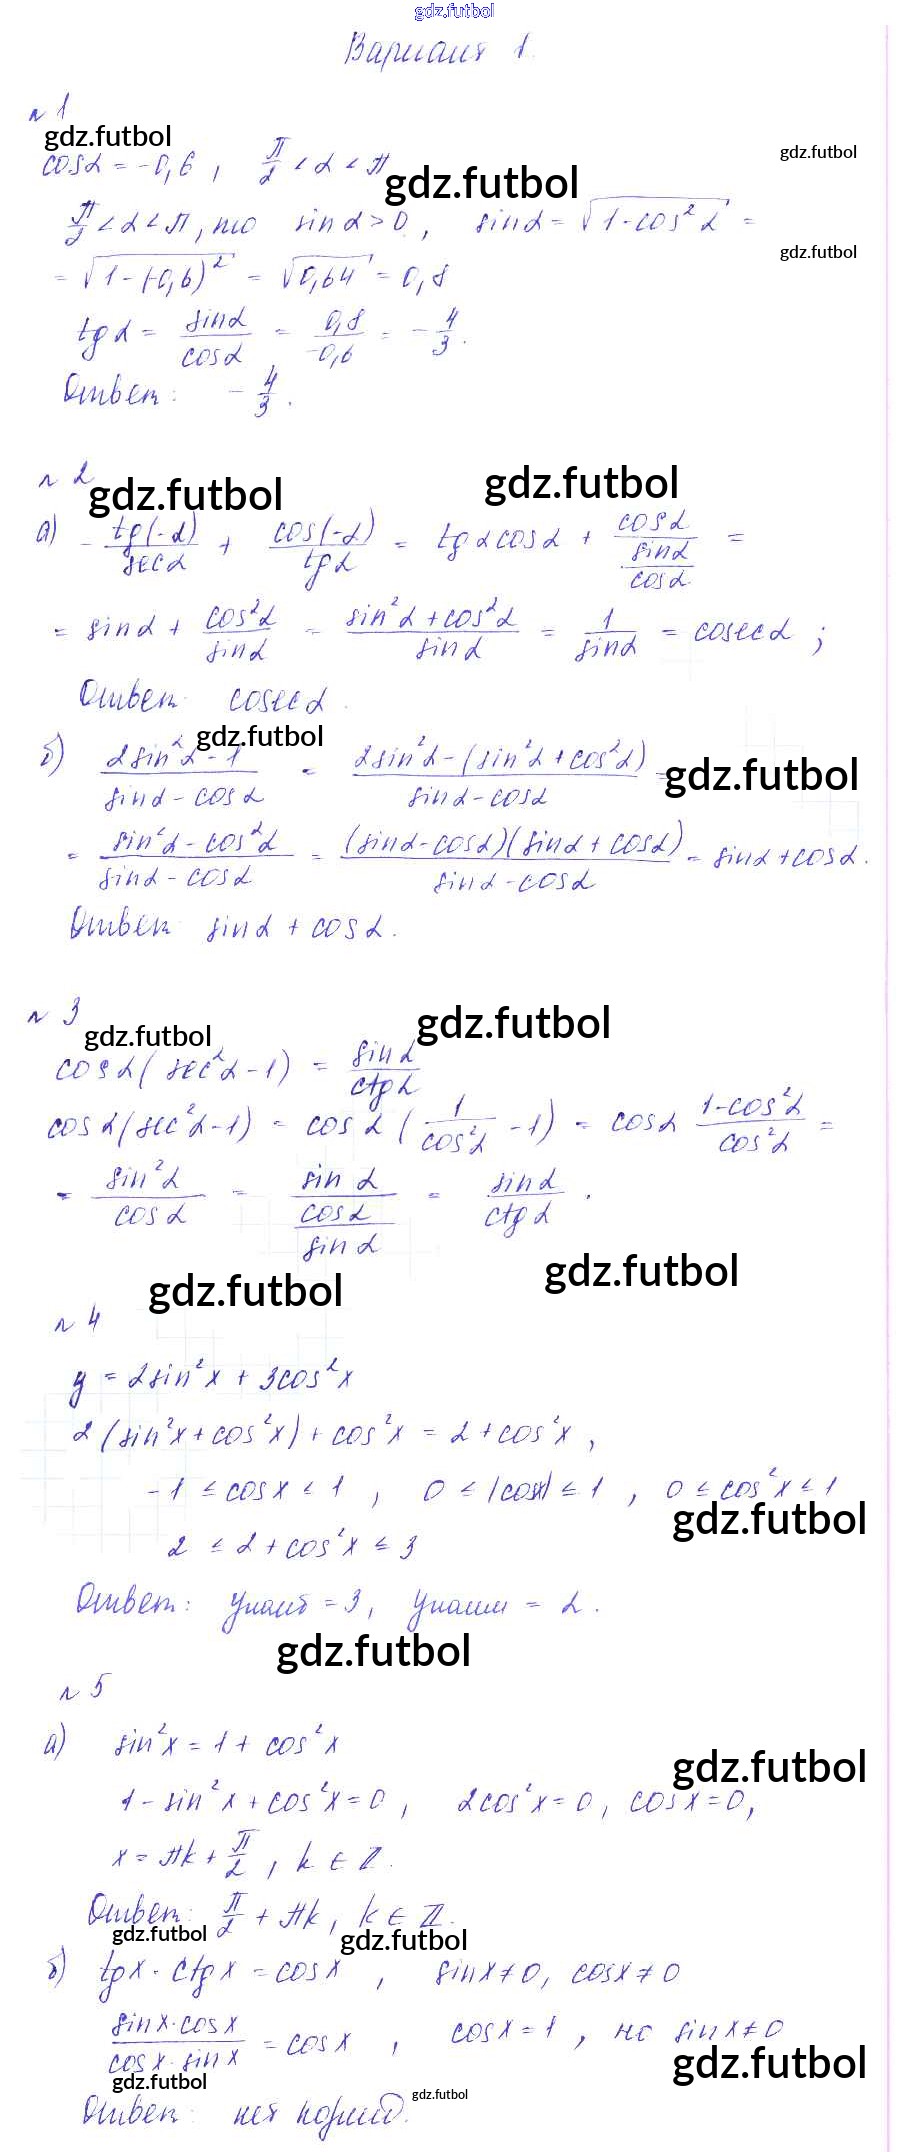 gdz.futbol
Вариант 1.
№ 1
gdz.futbol
cosα = -0,6 , π/2 < α < π
gdz.futbol
gdz.futbol
π/2 < α < π, то sinα > 0, sinα = √(1-cos²α) =
gdz.futbol
= √(1-(-0,6)²) = √0,64 = 0,8
tgα = sinα/cosα = 0,8/-0,6 = -4/3.
Ответ: -4/3.
№ 2
gdz.futbol
gdz.futbol
а) - tg(-α)/secα + cos(-α)/tgα = tgαcosα + cosα/(sinα/cosα) =
= sinα + cos²α/sinα = (sin²α + cos²α)/sinα = 1/sinα = cosecα ;
Ответ: cosecα.
б) (2sin²α - 1)/(sinα - cosα) = (2sin²α - (sin²α + cos²α))/(sinα - cosα) =
gdz.futbol
gdz.futbol
= (sin²α - cos²α)/(sinα - cosα) = (sinα - cosα)(sinα + cosα)/(sinα - cosα) = sinα + cosα.
Ответ: sinα + cosα.
№ 3
gdz.futbol
gdz.futbol
cosα(sec²α - 1) = sinα/ctgα
cosα(sec²α - 1) = cosα(1/cos²α - 1) = cosα (1-cos²α)/cos²α =
= sin²α/cosα = sinα/(cosα/sinα) = sinα/ctgα.
gdz.futbol
gdz.futbol
№ 4
y = 2sin²x + 3cos²x
2(sin²x + cos²x) + cos²x = 2 + cos²x,
-1 ≤ cosx ≤ 1 , 0 ≤ |cosx| ≤ 1 , 0 ≤ cos²x ≤ 1
gdz.futbol
2 ≤ 2 + cos²x ≤ 3
Ответ: унаиб = 3, унаим = 2.
gdz.futbol
№ 5
а) sin²x = 1 + cos²x
gdz.futbol
1 - sin²x + cos²x = 0 , 2cos²x = 0, cosx = 0,
x = πk + π/2 , k ∈ Z.
Ответ: π/2 + πk, k ∈ Z.
gdz.futbol
gdz.futbol
б) tgx · ctgx = cosx , sinx ≠ 0, cosx ≠ 0
sinx·cosx/cosx·sinx = cosx , cosx = 1 , но sinx ≠ 0
gdz.futbol
gdz.futbol
gdz.futbol
Ответ: нет корней.